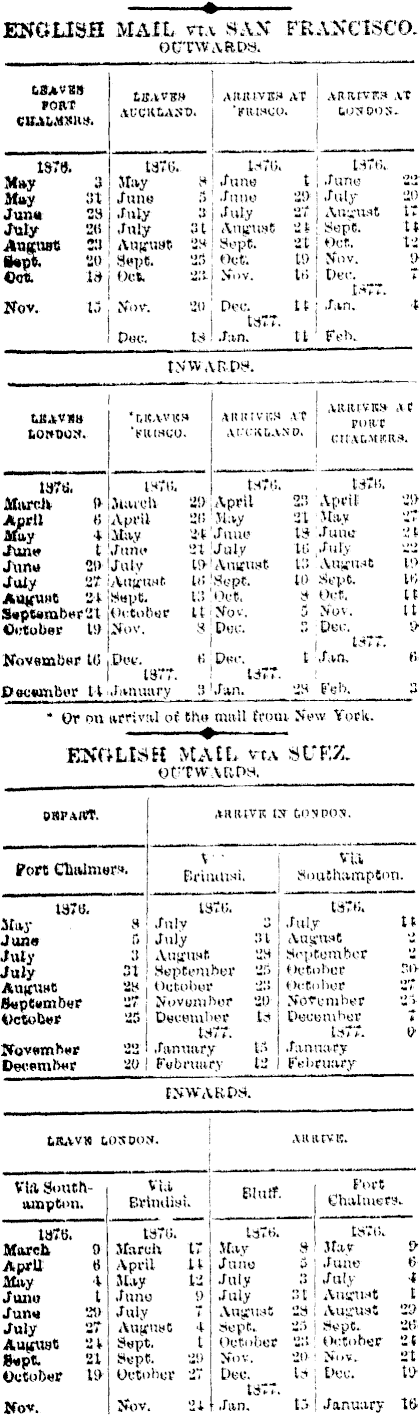 ENGLISH MAIL VIA SAN FRANCISCO.
OUTWARDS.
LEAVES PORT CHALMERS. LEAVES AUCKLAND. ARRIVES AT 'FRISCO. ARRIVES AT LONDON.
1876. 1876. 1876. 1876.
May 3 May 8 June 1 June 22
May 31 June 5 June 29 July 20
June 28 July 3 July 27 August 17
July 26 July 31 August 24 Sept. 14
August 23 August 28 Sept. 21 Oct. 12
Sept. 20 Sept. 25 Oct. 19 Nov. 9
Oct. 18 Oct. 23 Nov. 16 Dec. 7
1877.
Nov. 15 Nov. 20 Dec. 14 Jan. 4
1877.
Dec. 18 Jan. 11 Feb.
INWARDS.
LEAVES LONDON. *LEAVES 'FRISCO. ARRIVES AT AUCKLAND. ARRIVES AT PORT CHALMERS.
1876. 1876. 1876. 1876.
March 9 March 29 April 23 April 29
April 6 April 26 May 21 May 27
May 4 May 24 June 18 June 24
June 1 June 21 July 16 July 22
June 29 July 19 August 13 August 19
July 27 August 16 Sept. 10 Sept. 16
August 24 Sept. 13 Oct. 8 Oct. 14
September 21 October 11 Nov. 5 Nov. 11
October 19 Nov. 8 Dec. 3 Dec. 9
1877.
November 16 Dec. 6 Dec. 1 Jan. 6
1877. 1877.
December 14 January 3 Jan. 28 Feb. 3
* Or on arrival of the mail from New York.
ENGLISH MAIL VIA SUEZ.
OUTWARDS.
DEPART. ARRIVE IN LONDON.
Port Chalmers. Via Brindisi. Viâ Southampton.
1876. 1876. 1876.
May 8 July 3 July 14
June 5 July 31 August 2
July 3 August 28 September 2
July 31 September 25 October 30
August 28 October 23 October 27
September 27 November 20 November 25
October 25 December 18 December 7
1877. 1877. 6
November 22 January 15 January
December 20 February 12 February
INWARDS.
LEAVE LONDON. ARRIVE.
Viâ Southampton. Viâ Brindisi. Bluff. Port Chalmers.
1876. 1876. 1876. 1876.
March 9 March 17 May 8 May 9
April 6 April 14 June 5 June 6
May 4 May 12 July 3 July 4
June 1 June 9 July 31 August 1
June 29 July 7 August 28 August 29
July 27 August 4 Sept. 25 Sept. 26
August 24 Sept. 1 October 23 October 24
Sept. 21 Sept. 29 Nov. 20 Nov. 21
October 19 October 27 Dec. 18 Dec. 19
1877.
Nov. Nov. 24 Jan. 15 January 16